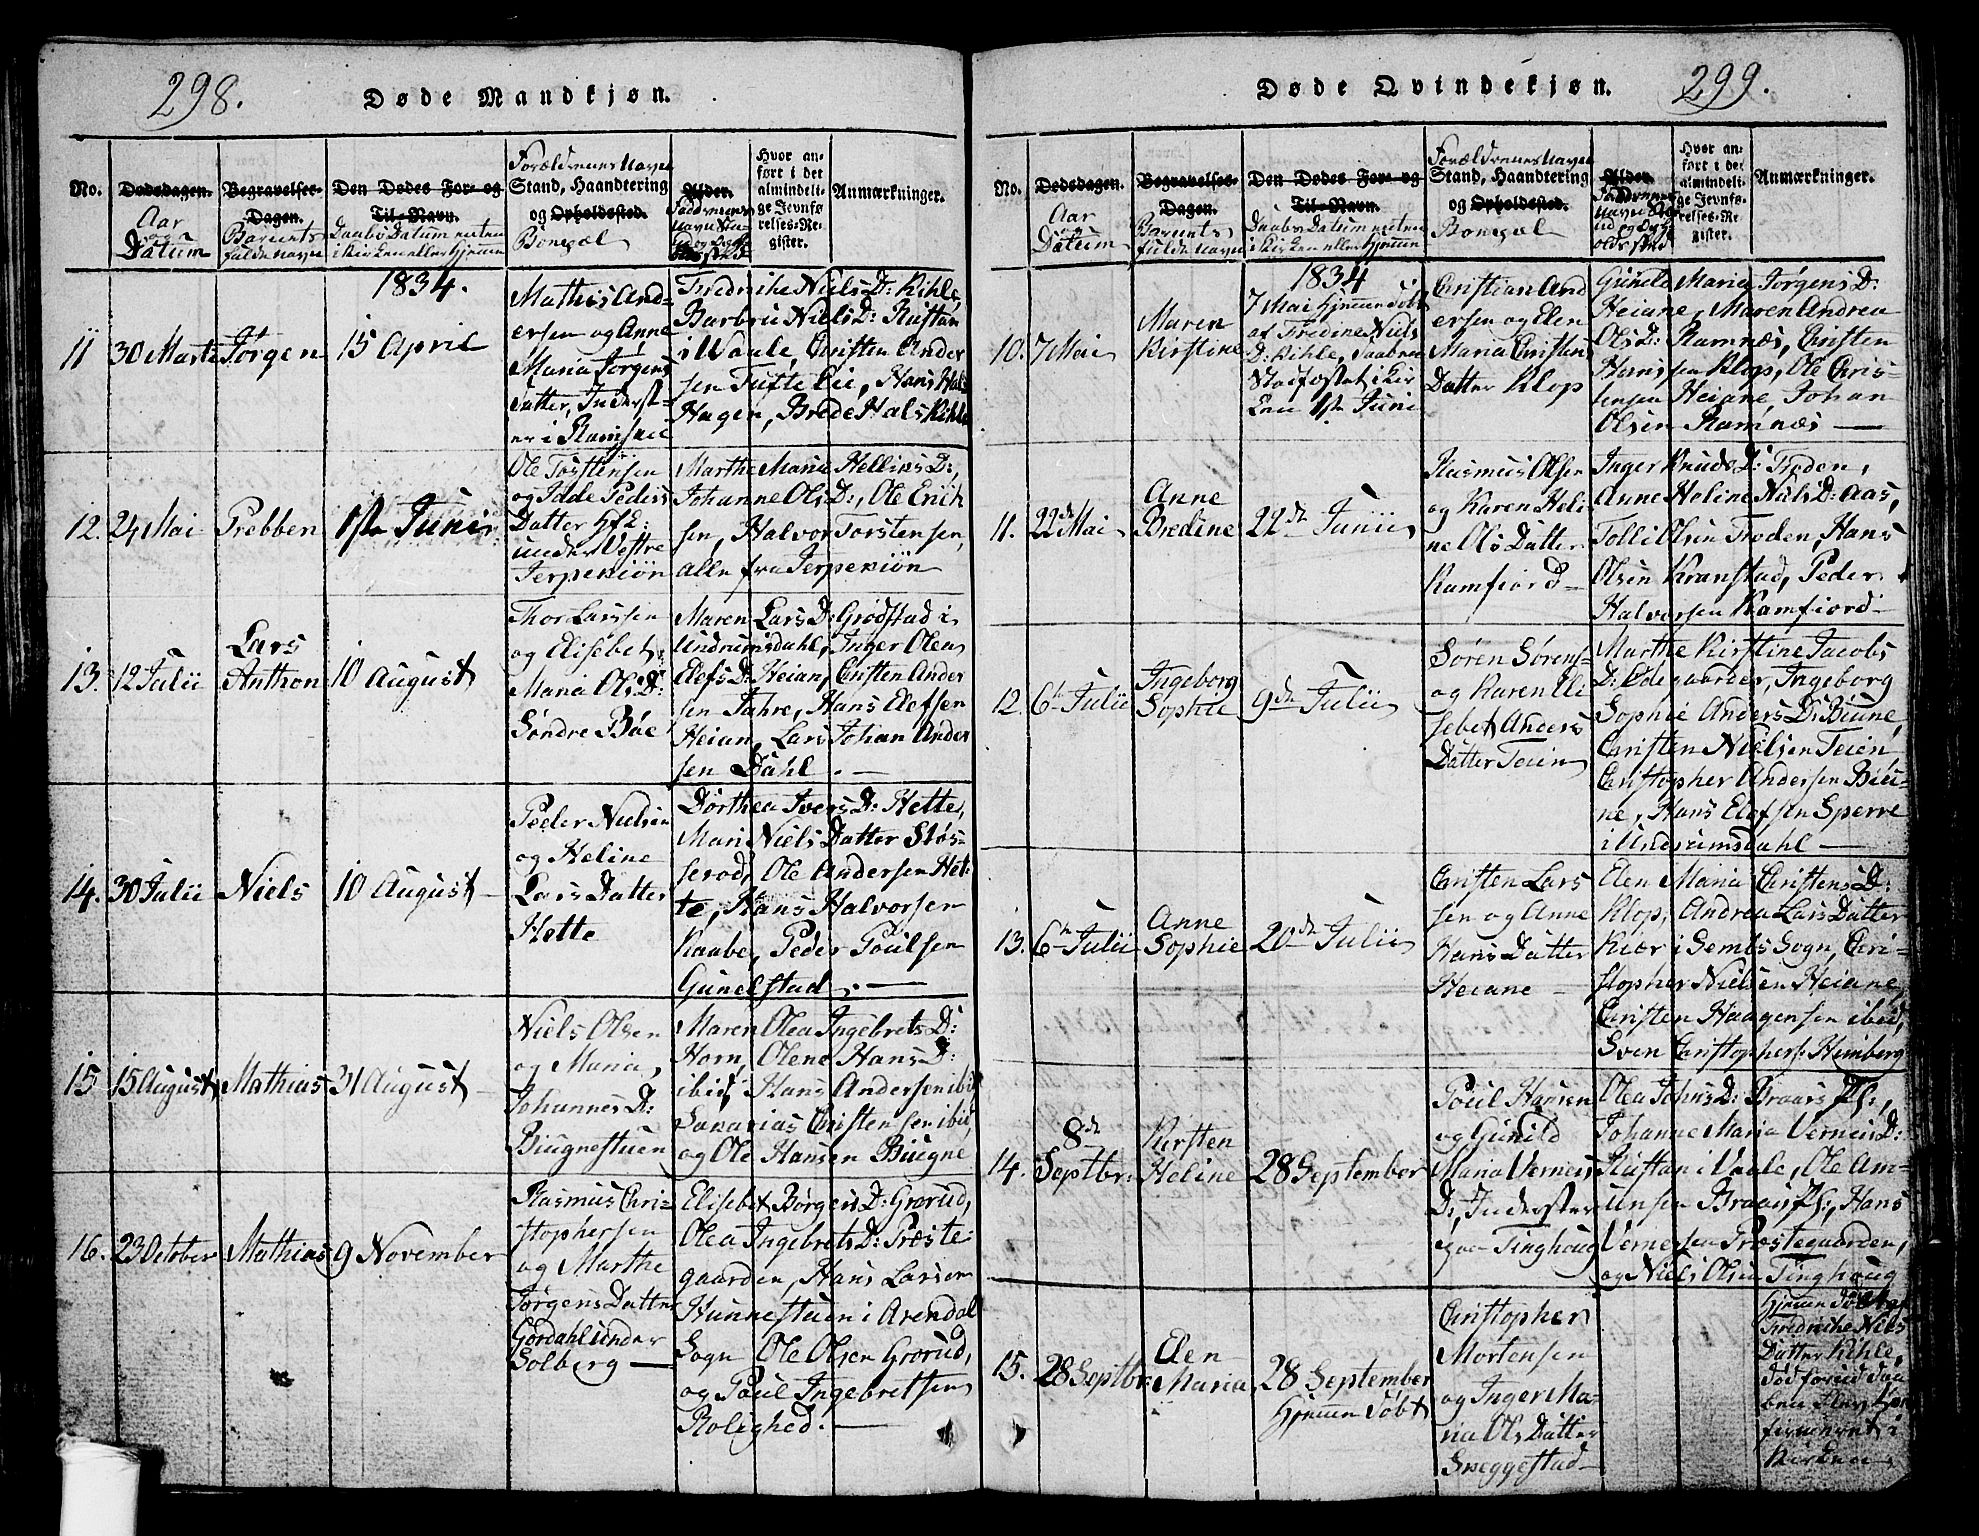 298.
Døde Mandkjøn.
No.
Dødsdagen.
Aar
og
Datum
Begravelses-
Dagen.
Barnets
fulde navn
Den Dødes For- og
Til-Navn.
Daabs Datum enten
i Kirken eller Hjemme
Forældrenes Navne
Stand, Haandtering
og Opholdssted.
Boepæl
Alder.
Faddernes
navne
Hvor an-
ført i det
almindeli-
ge Jevnfø-
relses-Re-
gister.
Anmærkninger.
1834.
11
30 Marti
Jørgen
15 April
Mathis And-
ersen og Anne
Maria Jørgens
Datter, Inderst-
er i Ramsaae
Fredrikke Niels D: Kihle,
Barbru Niels D: Rustan
i Vaale, Christen Ander
sen Tufte Eie, Hans Hals
Hagen, Brede Hals Kihle
12.
24 Mai
Prebben
1ste Junii
Ole Torstensen
og Idde Peders
Datter Hfd:
under Vestre
Jerpekiøn
Marthe Maria Hellins D:,
Johanne Ols D:, Ole Erich
sen, Halvor Torstensen,
alle fra Jerpekiøn
13.
12 Julii
Lars
Anthon
10 August
Thor Larssen
og Elisebet
Maria Ols D:
Søndre Bøe
Maren Lars D: Grødstad i
Undrumsdahl, Inger Olea
Elefs D: Heian, Christen Ander
sen Jahre, Hans Elefsen
Heian, Lars Johan Ander
sen Dahl. —
14.
30 Julii
Niels
10 August
Peder Nielsen
og Heline
Lars Datter
Hette
Dorthea Ivers D: Hette,
Mari Niels Datter Støs-
serod, Ole Andersen Het-
te, Hans Halvorsen
Raabe, Peder Poulsen
Gunelstad. —
15
15 August
Mathias
31 August
Niels Olsen
og Maria
Johannes D:
Biugnestuen
Maren Olea Ingebrets D:
Horn, Olene Hans D:
ibid, Hans Andersen ibid
Sakarias Christensen ibid,
og Ole Hansen Biugne
16.
23 October
Mathias
9 November
Rasmus Chri-
stophersen
og Marthe
Jørgens Datter
Gordahl under
Solberg —
Elisebet Børgers D: Grorud,
Olea Ingebrets D: Præste-
gaarden, Hans Larsen
Hunnestuen i Arendal
Sogn Ole Olsen Grorud,
og Poul Ingebretsen
Rolighed. —
299.
Døde Qvindekjøn.
No.
Dødsdagen.
Aar
og
Datum
Begravelses-
Dagen.
Barnets
fulde navn
Den Dødes For- og
Til-Navn.
Daabs Datum enten
i Kirken eller Hjemme
Forældrenes Navne
Stand, Haandtering
og Opholdssted.
Boepæl
Alder.
Faddernes
navne
Hvor an-
ført i det
almindeli-
ge Jevnfø-
relses-Re-
gister.
Anmærkninger.
1834
10.
7 Mai
Maren
Kirstine
7 Mai hjemme døbt
af Fredine Niels
D: Kihle, Daaben
Stadfæstet i Kir
ken 1ste Junii
Christian And
ersen og Elen
Maria Christens
Datter Klop
Gunild Maria Jørgens D:
Heiane, Maren Andrea
Ols D: Ramnæs, Christen
Hanssen Klop, Ole Chris-
tensen Heiane Johan
Olsen Ramnæs —
11.
22de Mai
Anne
Bredine
22de Junii
Rasmus Olsen
og Karen Heli
ne Ols Datter
Ramfiord
Inger Knuds D: Froden,
Anne Heline Niels D: Aas,
Tolli Olsen Froden, Hans
Olsen Kranstad, Peder
Halvorsen Ramfiord
12.
6te Julii
Ingeborg
Sophie
9de Julii
Søren Sørens-
og Karen Eli
sebet Anders
Datter Teien
Marthe Kirstine Jacobs
D: Ødegaarden, Ingeborg
Sophie Anders D: Biune,
Christen Nielsen Teien
Christopher Andersen Biu-
ne, Hans Elefsen Sperre
i Undrumsdahl —
13.
6te Julii
Anne
Sophie
20de Julii
Christen Lars
sen og Anne
Hans Datter
Heiane
Elen Maria Christens D:
Klop, Andrea Lars Datter
Kiær i Sembs Sogn, Chri-
stopher Nielsen Heiane,
Christen Haagensen ibid,
Sven Christophers: Himberg
14.
8de
Septbr:
Kirsten
Heline
28 September
Poul Hansen
og Gunild
Maria Verners
D:, Inderster
paa Tinghoug
Olea Johns D: Braars Pl:,
Johanne Maria Verners D:
Rustan i Vaale, Ole Am-
unsen Braars Pl:, Hans
Vernersen Præstegaarden,
og Niels Olsen Tinghoug
15.
28 Septbr:
Elen
Maria
28 September
hjemme døbt
Christopher
Mortensen
og Inger Ma-
ria Ols Datter
Sneggestad
Hjemme døbt af
Fredrikke Niels
Datter Kihle,
død forend Daa
ben blev kon
firmeret i
Kirken